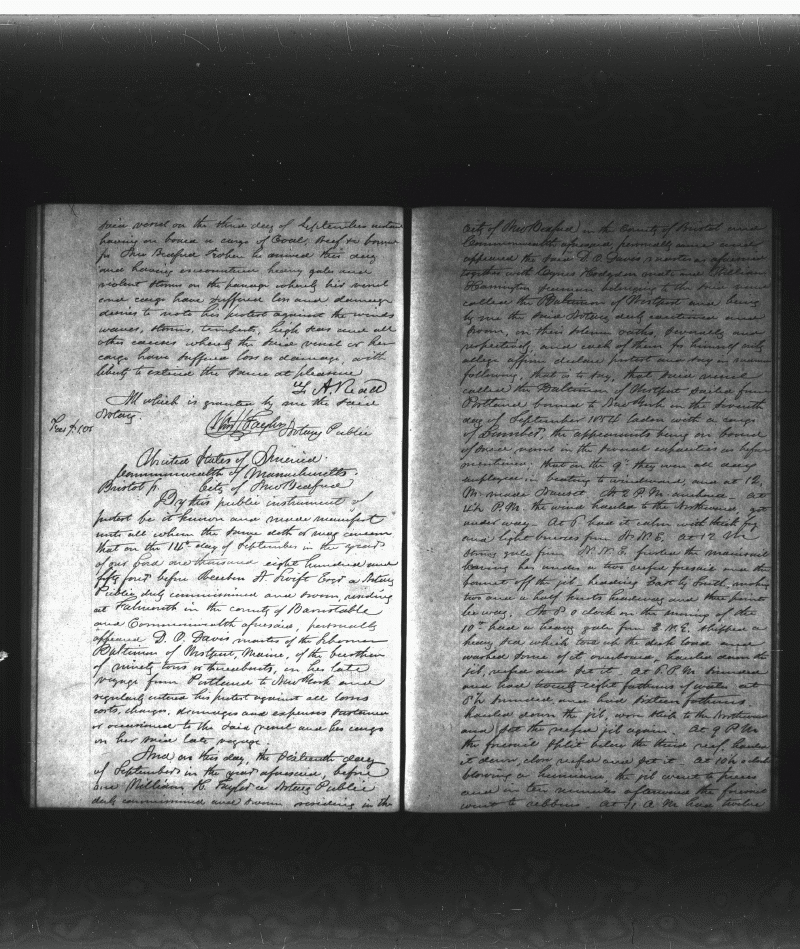 said vessel on the third day of September instant
having on board a cargo of Coal, Beef &c bound
for New Bedford where he arrived this day
and having encountered heavy gales and
violent storms on the passage whereby his vessel
and cargo have suffered loss and damage
desires to note his protest against the winds
waves, storms, tempests, high seas and all
other causes whereby the said vessel or her
cargo have suffered loss or damage, with
liberty to extend the same at pleasure
All which is granted by me the said
Notary
Notary Public
United States of America
Commonwealth of Massachusetts.
Bristol ss. City of New Bedford
By this public instrument of
protest be it known and made manifest
unto all whom the same doth or may concern
that on the 14th day of September in the year
of our Lord one thousand eight hundred and
fifty four before Swift Esqr a Notary
Public duly commissioned and sworn, residing
at Falmouth in the county of Barnstable
and Commonwealth aforesaid, personally
appeared D. O. Davis, master of the Schooner
Baltimore of Westport, Maine, of the burthen
of ninety tons or thereabouts, in her late
voyage from Portland to New York and
regularly entered his protest against all losses
costs, charges, damages and expenses sustained
or occasioned to the said vessel and her cargo
in her said late voyage.
And on this day, the sixteenth day
of September in the year aforesaid, before
me William H. Taylor a Notary Public
duly commissioned and sworn residing in the
City of New Bedford in the County of Bristol and
Commonwealth aforesaid, personally came and
appeared the said D. O. Davis master as aforesaid
together with Cyrus Hodgdon mate and William
Harrington seaman belonging to the said vessel
called the Baltimore of Westport and being
by me the said Notary duly cautioned and
sworn, in their solemn oaths, severally and
respectively, and each of them for himself only
allege affirm declare protest and say in manner
following, that is to say, that said vessel
called the Baltimore of Westport sailed from
Portland bound to New York on the seventh
day of September 1854 laden with a cargo
of Lumber, the appearants being on board
of said vessel in the several capacities as before
mentioned; that on the 9th they were all day
employed in beating to windward, and at 12,
M. made Nauset. At 2 P.M. anchored. At
4½ P.M. the wind hauled to the Northward, got
under way. At 8 had it calm with thick fog
and light breezes from N.N.E. At 12 M
strong gale from N.N.E. furled the mainsail
leaving her under a two reefed foresail and the
bonnet off the jib, heading East by South, making
two and a half knots headway and three points
lee way. At 8 o clock in the morning of the
10th had a heavy gale from E.N.E. shipped a
heavy sea which tore up the deck load and
washed some of it overboard, hauled down the
jib, reefed and set it. At 6 P.M. sounded
and had twenty eight fathoms of water at
8½ sounded and had sixteen fathoms
hauled down the jib, wore ship to the Northward
and set the reefed jib again. At 9 P.M.
the foresail split below the third reef, hauled
it down, close reefed and set it. At 10½ o clock
blowing a hurricane, the jib went to pieces
and in ten minutes afterward the foresail
went to ribbons. At 1 A.M. had twelve